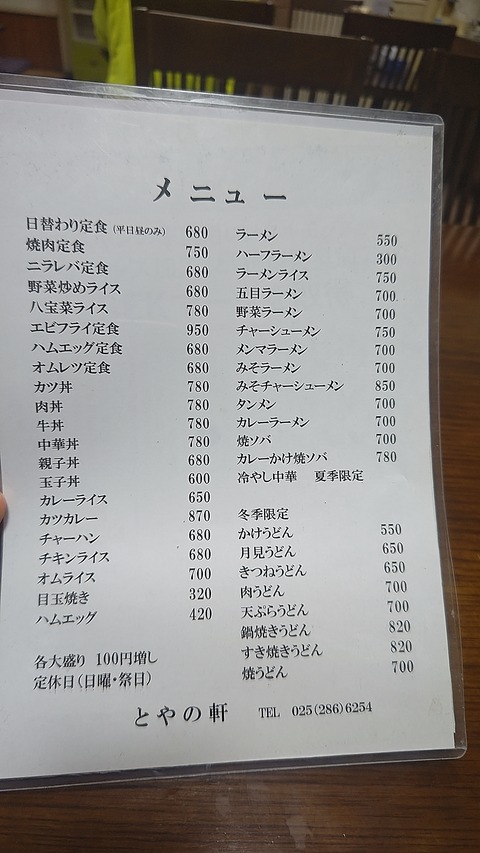 メニュー
日替わり定食 (平日昼のみ) 680
焼肉定食 750
ニラレバ定食 680
野菜炒めライス 680
八宝菜ライス 780
エビフライ定食 950
ハムエッグ定食 680
オムレツ定食 680
カツ丼 780
肉丼 780
牛丼 780
中華丼 780
親子丼 680
玉子丼 600
カレーライス 650
カツカレー 870
チャーハン 680
チキンライス 680
オムライス 700
目玉焼き 320
ハムエッグ 420
各大盛り 100円増し
定休日(日曜・祭日)
ラーメン 550
ハーフラーメン 300
ラーメンライス 750
五目ラーメン 700
野菜ラーメン 700
チャーシューメン 750
メンマラーメン 700
みそラーメン 700
みそチャーシューメン 850
タンメン 700
カレーラーメン 700
焼ソバ 700
カレーかけ焼ソバ 780
冷やし中華 夏季限定
冬季限定
かけうどん 550
月見うどん 650
きつねうどん 650
肉うどん 700
天ぷらうどん 700
鍋焼きうどん 820
すき焼きうどん 820
焼うどん 700
とやの軒 TEL 025(286)6254